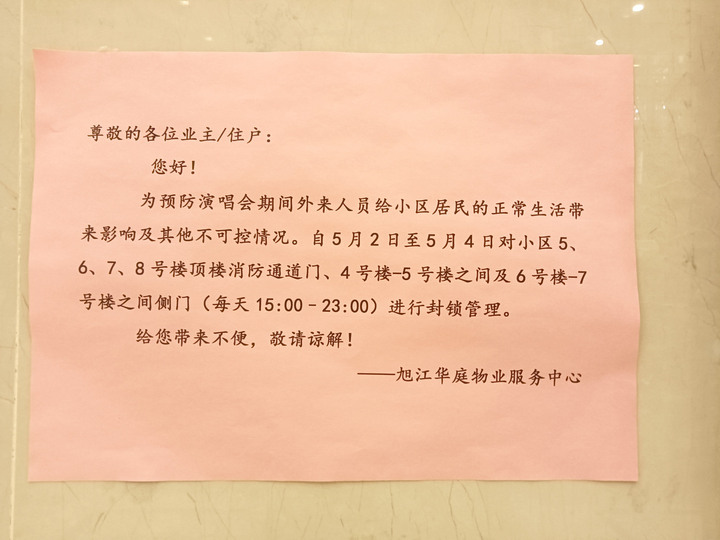 尊敬的各位业主/住户：
您好！
为预防演唱会期间外来人员给小区居民的正常生活带
来影响及其他不可控情况。自5月2日至5月4日对小区5、
6、7、8号楼顶楼消防通道门、4号楼-5号楼之间及6号楼-7
号楼之间侧门（每天15:00–23:00）进行封锁管理。
给您带来不便，敬请谅解！
——旭江华庭物业服务中心